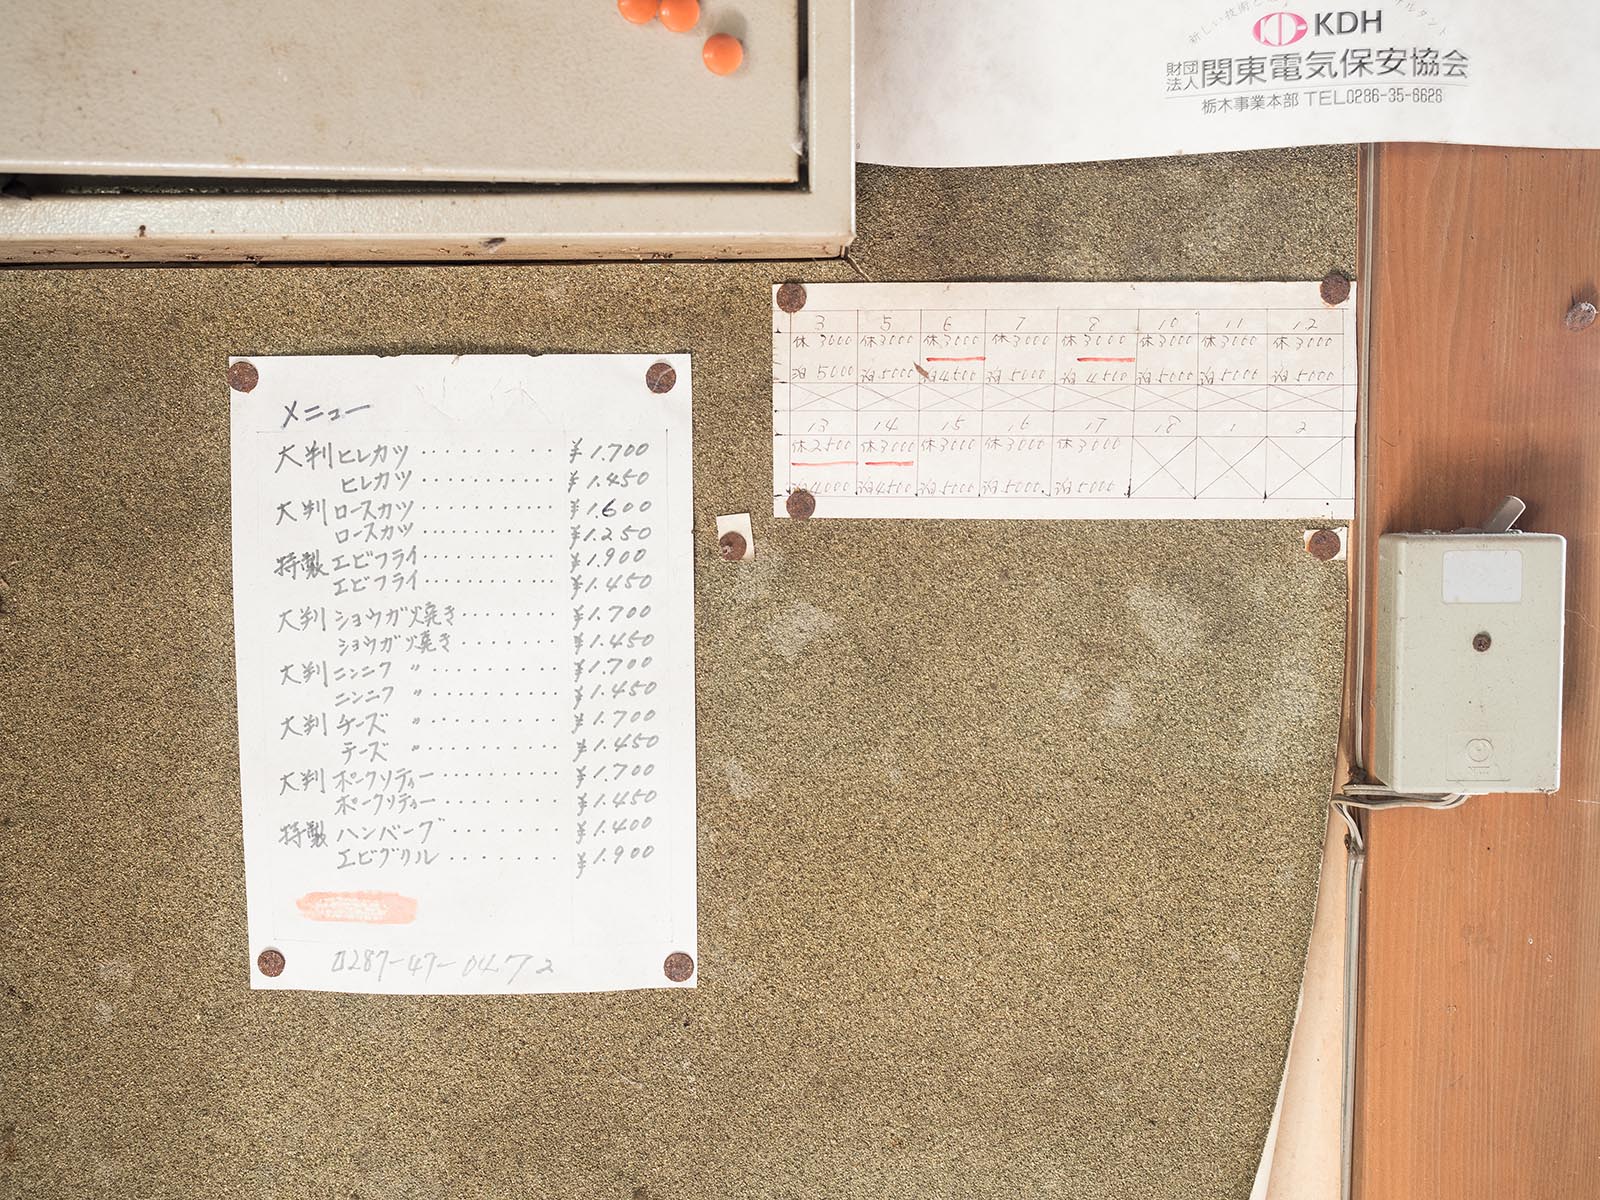 新しい技術と
サルタント
KDH
財団法人 関東電気保安協会
栃木事業本部 TEL0286-35-6626
3 5 6 7 8 10 11 12
休 3000 休 3000 休 3000 休 3000 休 3000 休 3000 休 3000 休 3000
泊 5000 泊 5000 泊 4500 泊 5000 泊 4500 泊 5000 泊 5000 泊 5000
13 14 15 16 17 18 1 2
休 2500 休 3000 休 3000 休 3000 休 3000
泊 4000 泊 4500 泊 5000 泊 5000 泊 5000
メニュー
大判 ヒレカツ ・・・・・・・・・・ ¥1.700
ヒレカツ ・・・・・・・・・・ ¥1.450
大判 ロースカツ ・・・・・・・・・・ ¥1.600
ロースカツ ・・・・・・・・・・ ¥1.250
特製 エビフライ ・・・・・・・・・・ ¥1.900
エビフライ ・・・・・・・・・・ ¥1.450
大判 ショウガ焼き ・・・・・・・・ ¥1.700
ショウガ焼き ・・・・・・・・ ¥1.450
大判 ニンニク 〃 ・・・・・・・・・・ ¥1.700
ニンニク 〃 ・・・・・・・・・・ ¥1.450
大判 チーズ 〃 ・・・・・・・・・・ ¥1.700
チーズ 〃 ・・・・・・・・・・ ¥1.450
大判 ポークソティー ・・・・・・・・・ ¥1.700
ポークソティー ・・・・・・・・・ ¥1.450
特製 ハンバーグ ・・・・・・・・ ¥1.400
エビグリル ・・・・・・・・ ¥1.900
0287-47-0472